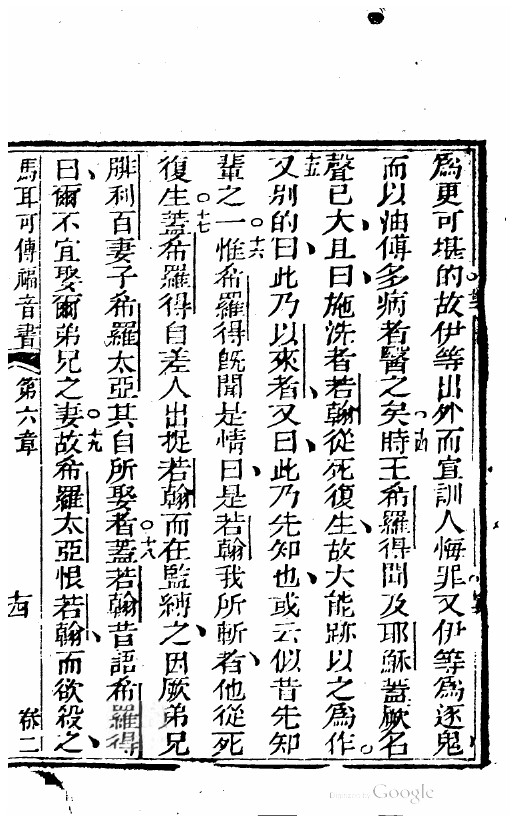 爲更可堪的○十二故伊等出外而宣訓人悔罪○十三又伊等爲逐鬼
而以油傅多病者醫之矣○十四時王希羅得聞及耶穌蓋厥名
聲已大、且曰、施洗者若翰從死復生、故大能跡以之爲作○
十五又別的曰、此乃以來者、又曰、此乃先知也、或云似昔先知
輩之一○十六惟希羅得旣聞是情曰、是若翰我所斬者、他從死
復生○十七蓋希羅得自差人出捉若翰而在監縛之、因厥弟兄
腓利百妻子希羅太亞其自所娶者○十八蓋若翰昔語希羅得
曰、爾不宜娶爾弟兄之妻○十九故希羅太亞恨若翰、而欲殺之、
馬耳可傳福音書 第六章 十四 卷二
Digitized by Google